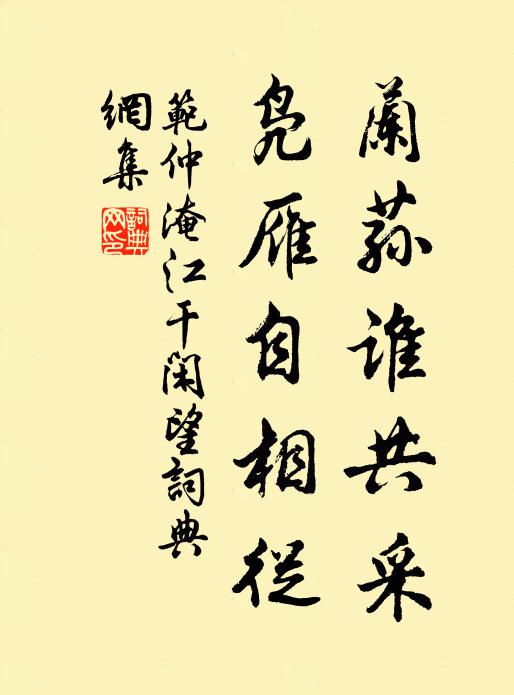 蘭蓀誰共采
鳧雁自相從
範仲淹江干閑望詞典
網集
詞典網印